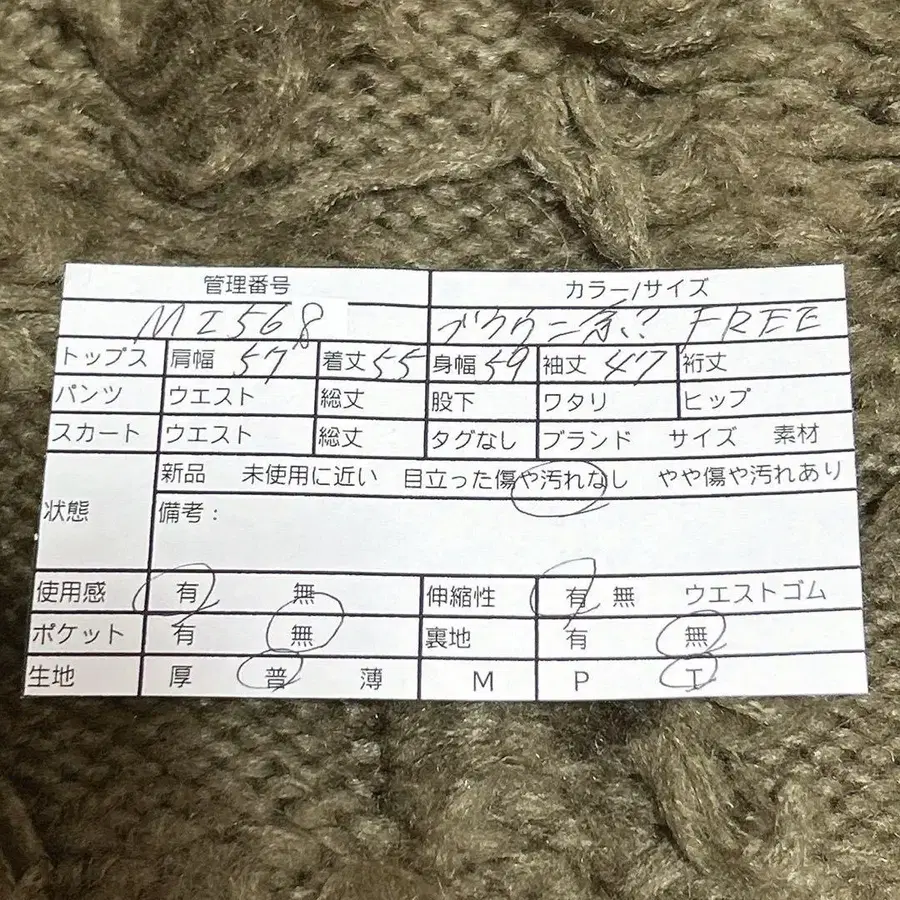 管理番号 カラー/サイズ
MI568 FREE
トップス 肩幅 57 着丈 55 身幅 59 袖丈 47 裄丈
パンツ ウエスト 総丈 股下 ワタリ ヒップ
スカート ウエスト 総丈 タグなし ブランド サイズ 素材
状態 新品 未使用に近い 目立った傷や汚れなし やや傷や汚れあり
備考：
使用感 有 無 伸縮性 有 無 ウエストゴム
ポケット 有 無 裏地 有 無
生地 厚 普 薄 M P I